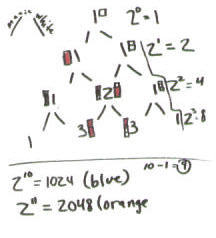 1 2⁰=1
1 1 2¹=2
1 2 1 2²=4
1 3 3 1 2³=8
10-1=9
2¹⁰=1024 (blue)
2¹¹=2048 (orange